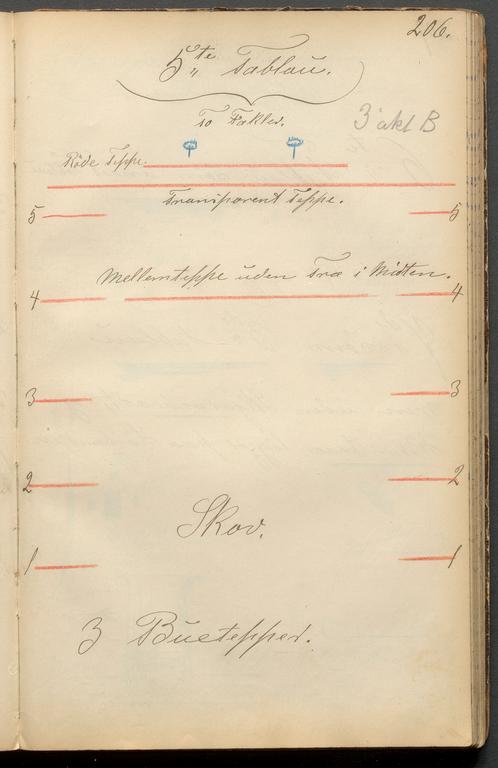 206.
5te Tablau.
To Fakler.
3 akt B
Röde Teppe.
Transparent Teppe.
5 5
Mellemteppe uden Træ i Midten.
4 4
3 3
2 2
Skov.
1 1
3 Buetepper.